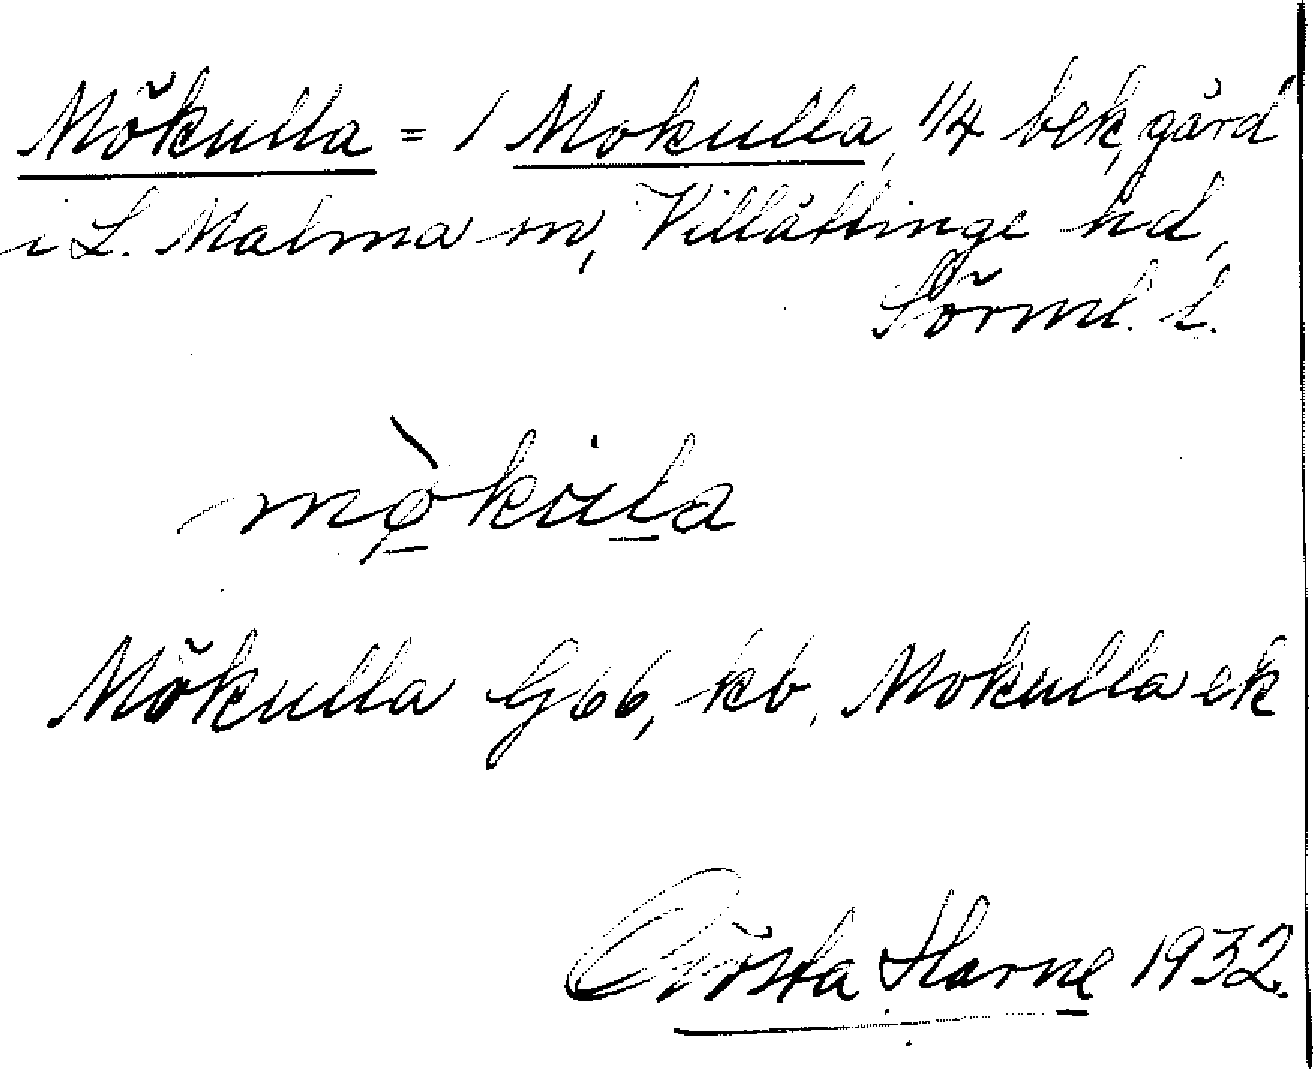 Mökulla = 1 Mokulla, 1/4 bek, gård
i L. Malma sn, Villåttinge hd,
Sörml. l.
mø̀kula
Mökulla G66, kb, Mokulla ek
Gösta Harne 1932.